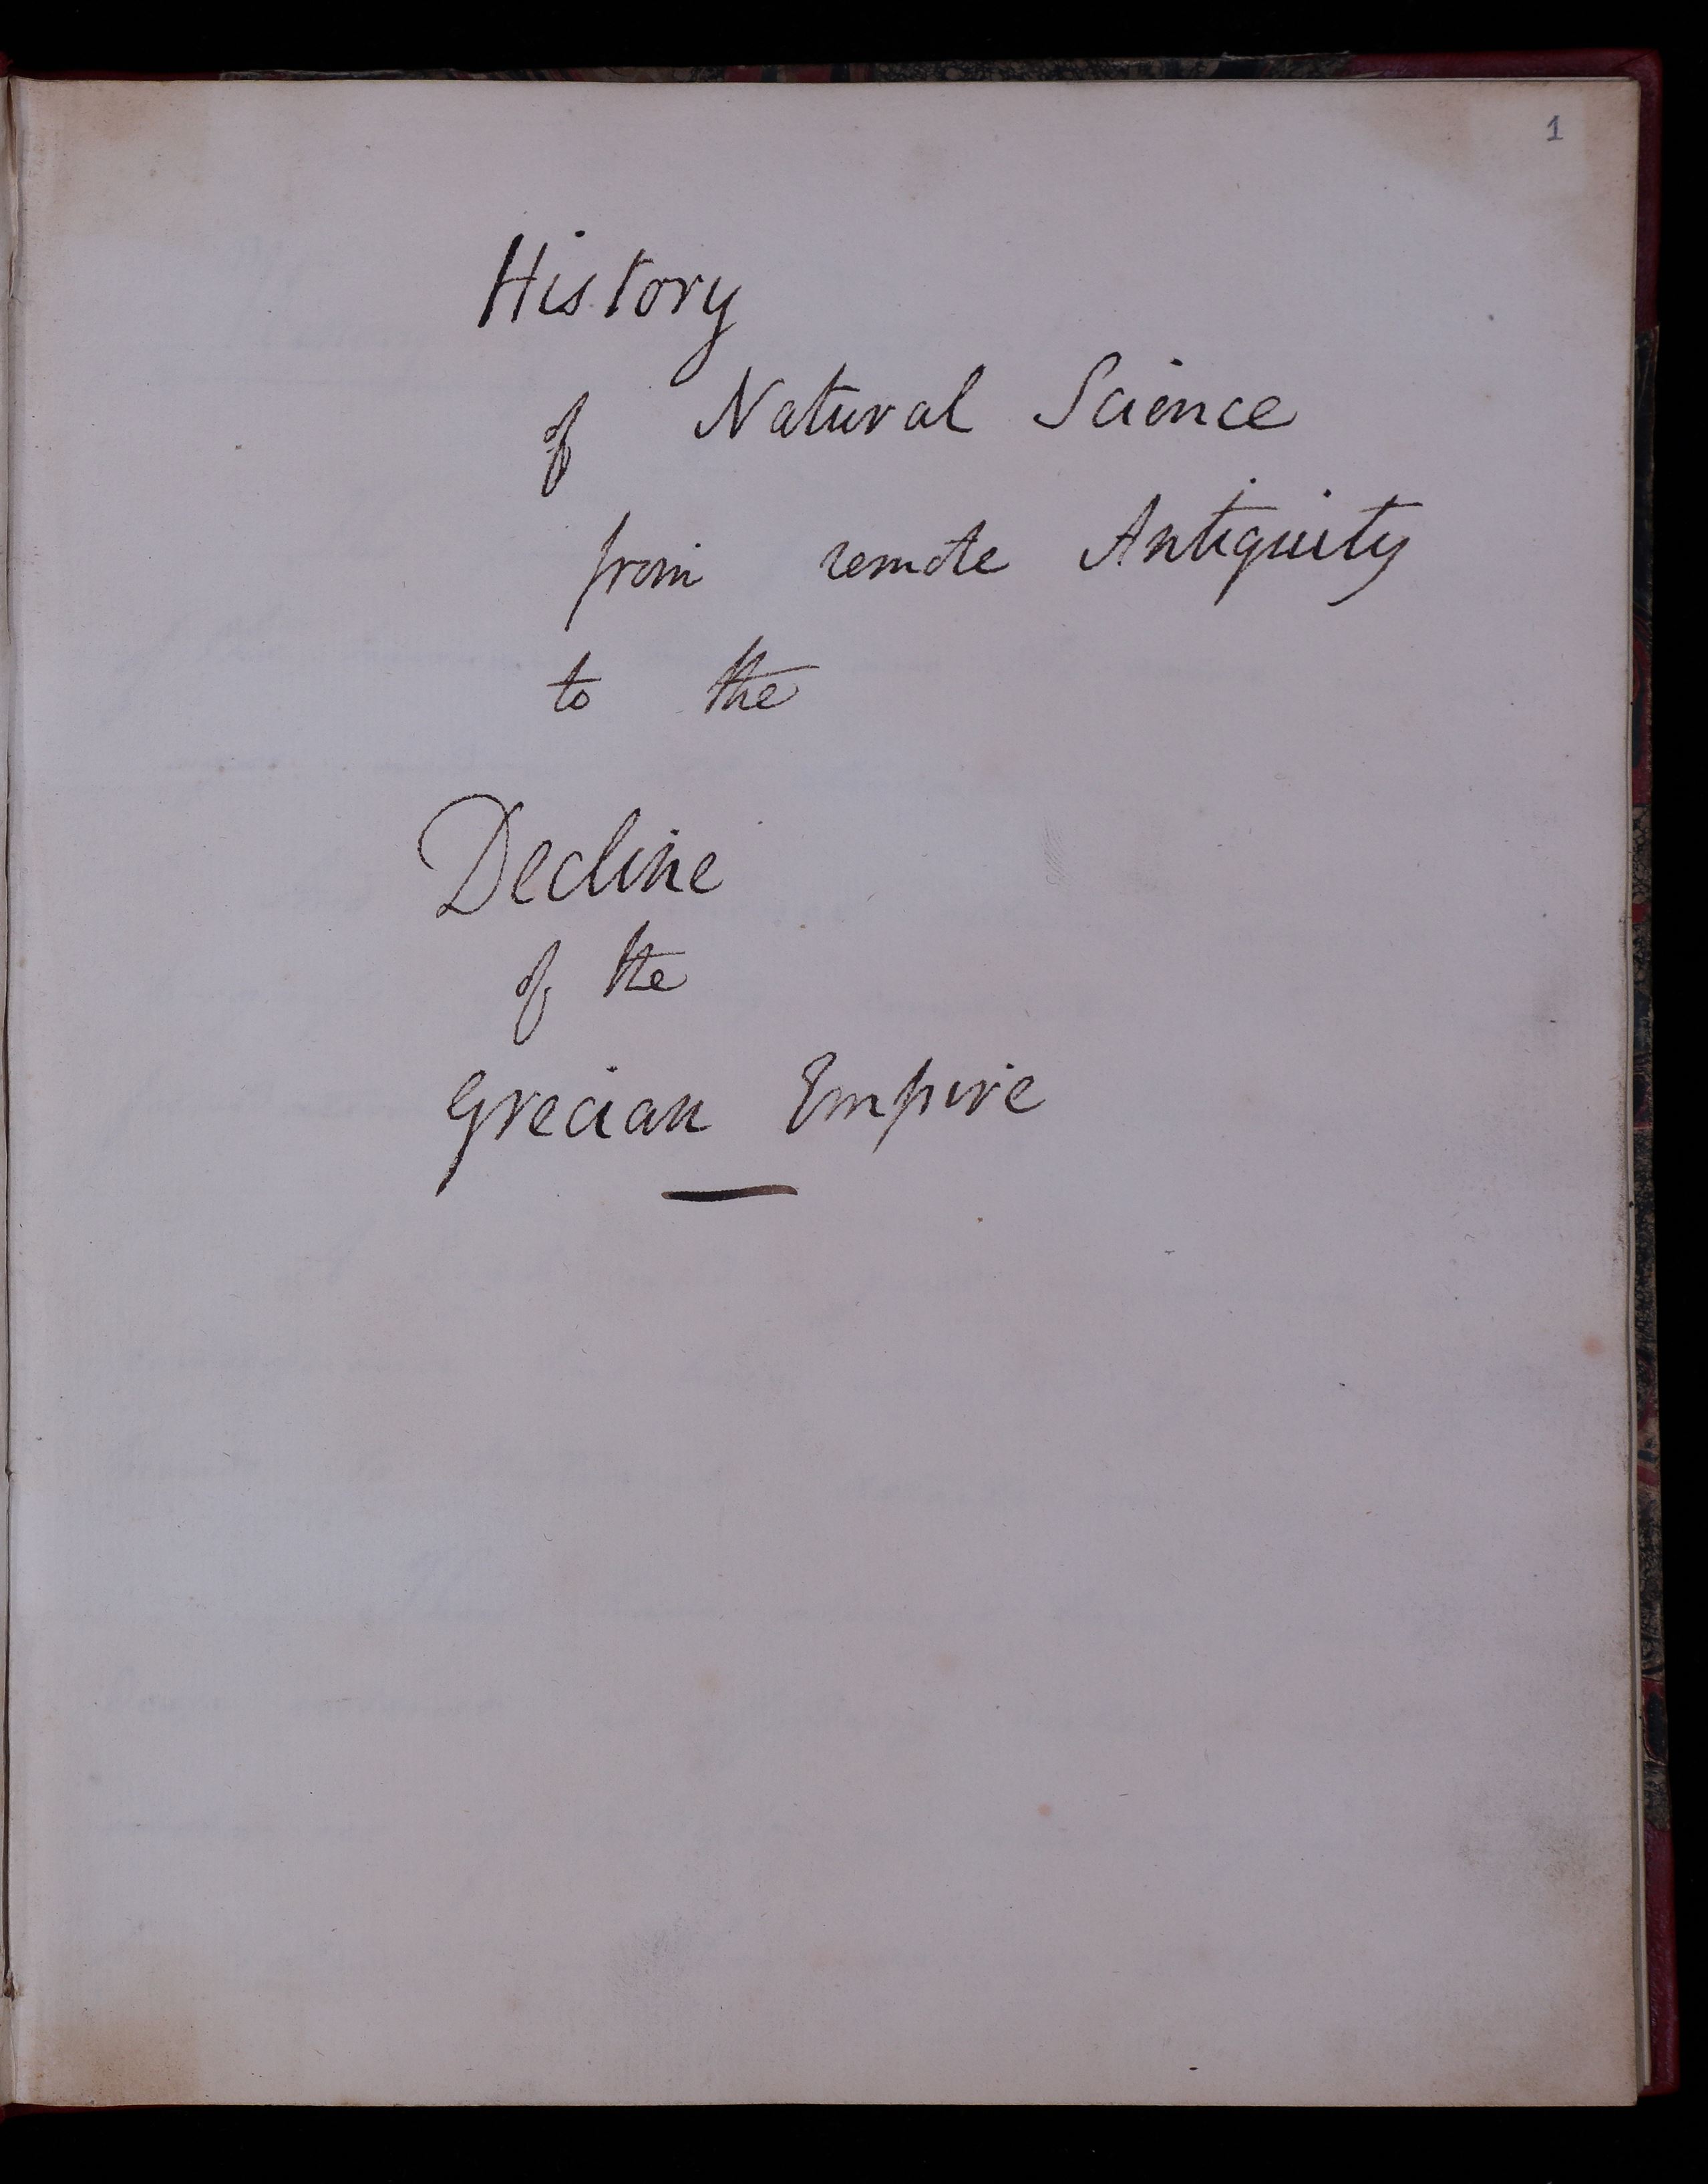 1
History
of Natural Science
from remote Antiquity
to the
Decline
of the
Grecian Empire